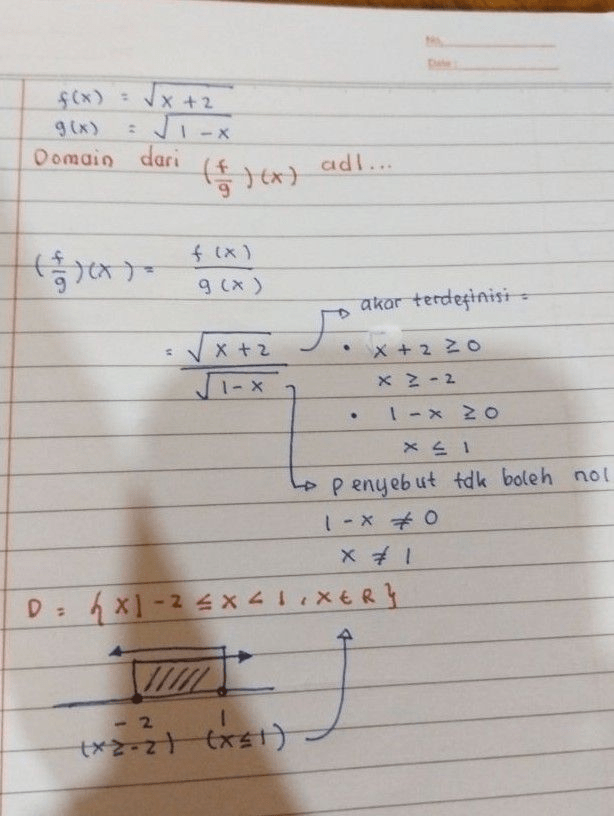 No.
Date :
f(x) = √x + 2
g(x) = √1 - x
Domain dari (f/g)(x) adl...
(f/g)(x) = f(x)/g(x)
= √x + 2/√1 - x
akar terdefinisi =
• x + 2 ≥ 0
x ≥ -2
• 1 - x ≥ 0
x ≤ 1
penyebut tdk boleh nol
1 - x ≠ 0
x ≠ 1
D = {x | -2 ≤ x < 1, x ∈ R}
-2 1
(x ≥ -2) (x ≤ 1)